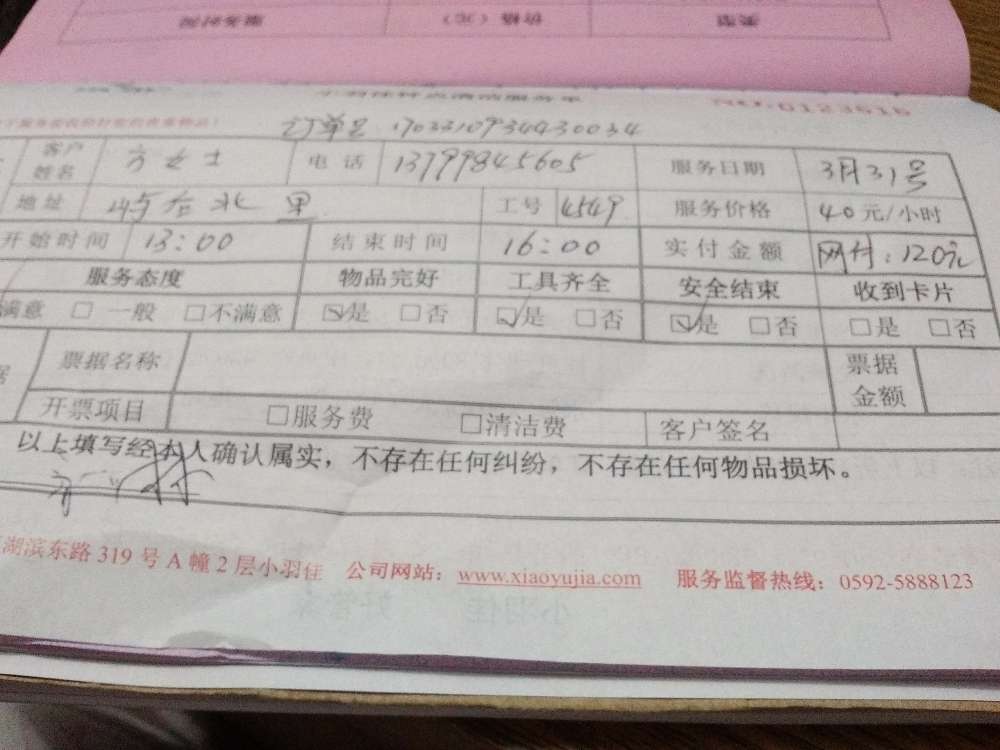 类型 价格（元） 服务时间
NO:0123515
订单号 1703310934430034
客户姓名 方女士 电话 13799845605 服务日期 3月31号
地址 后北里 工号 4549 服务价格 40元/小时
开始时间 13:00 结束时间 16:00 实付金额 网付:120元
服务态度 物品完好 工具齐全 安全结束 收到卡片
满意 □一般 □不满意 ☑是 □否 ☑是 □否 ☑是 □否 □是 □否
票据名称 票据金额
开票项目 □服务费 □清洁费 客户签名
以上填写经本人确认属实，不存在任何纠纷，不存在任何物品损坏。
湖滨东路319号A幢2层小羽佳 公司网站：www.xiaoyujia.com 服务监督热线：0592-5888123